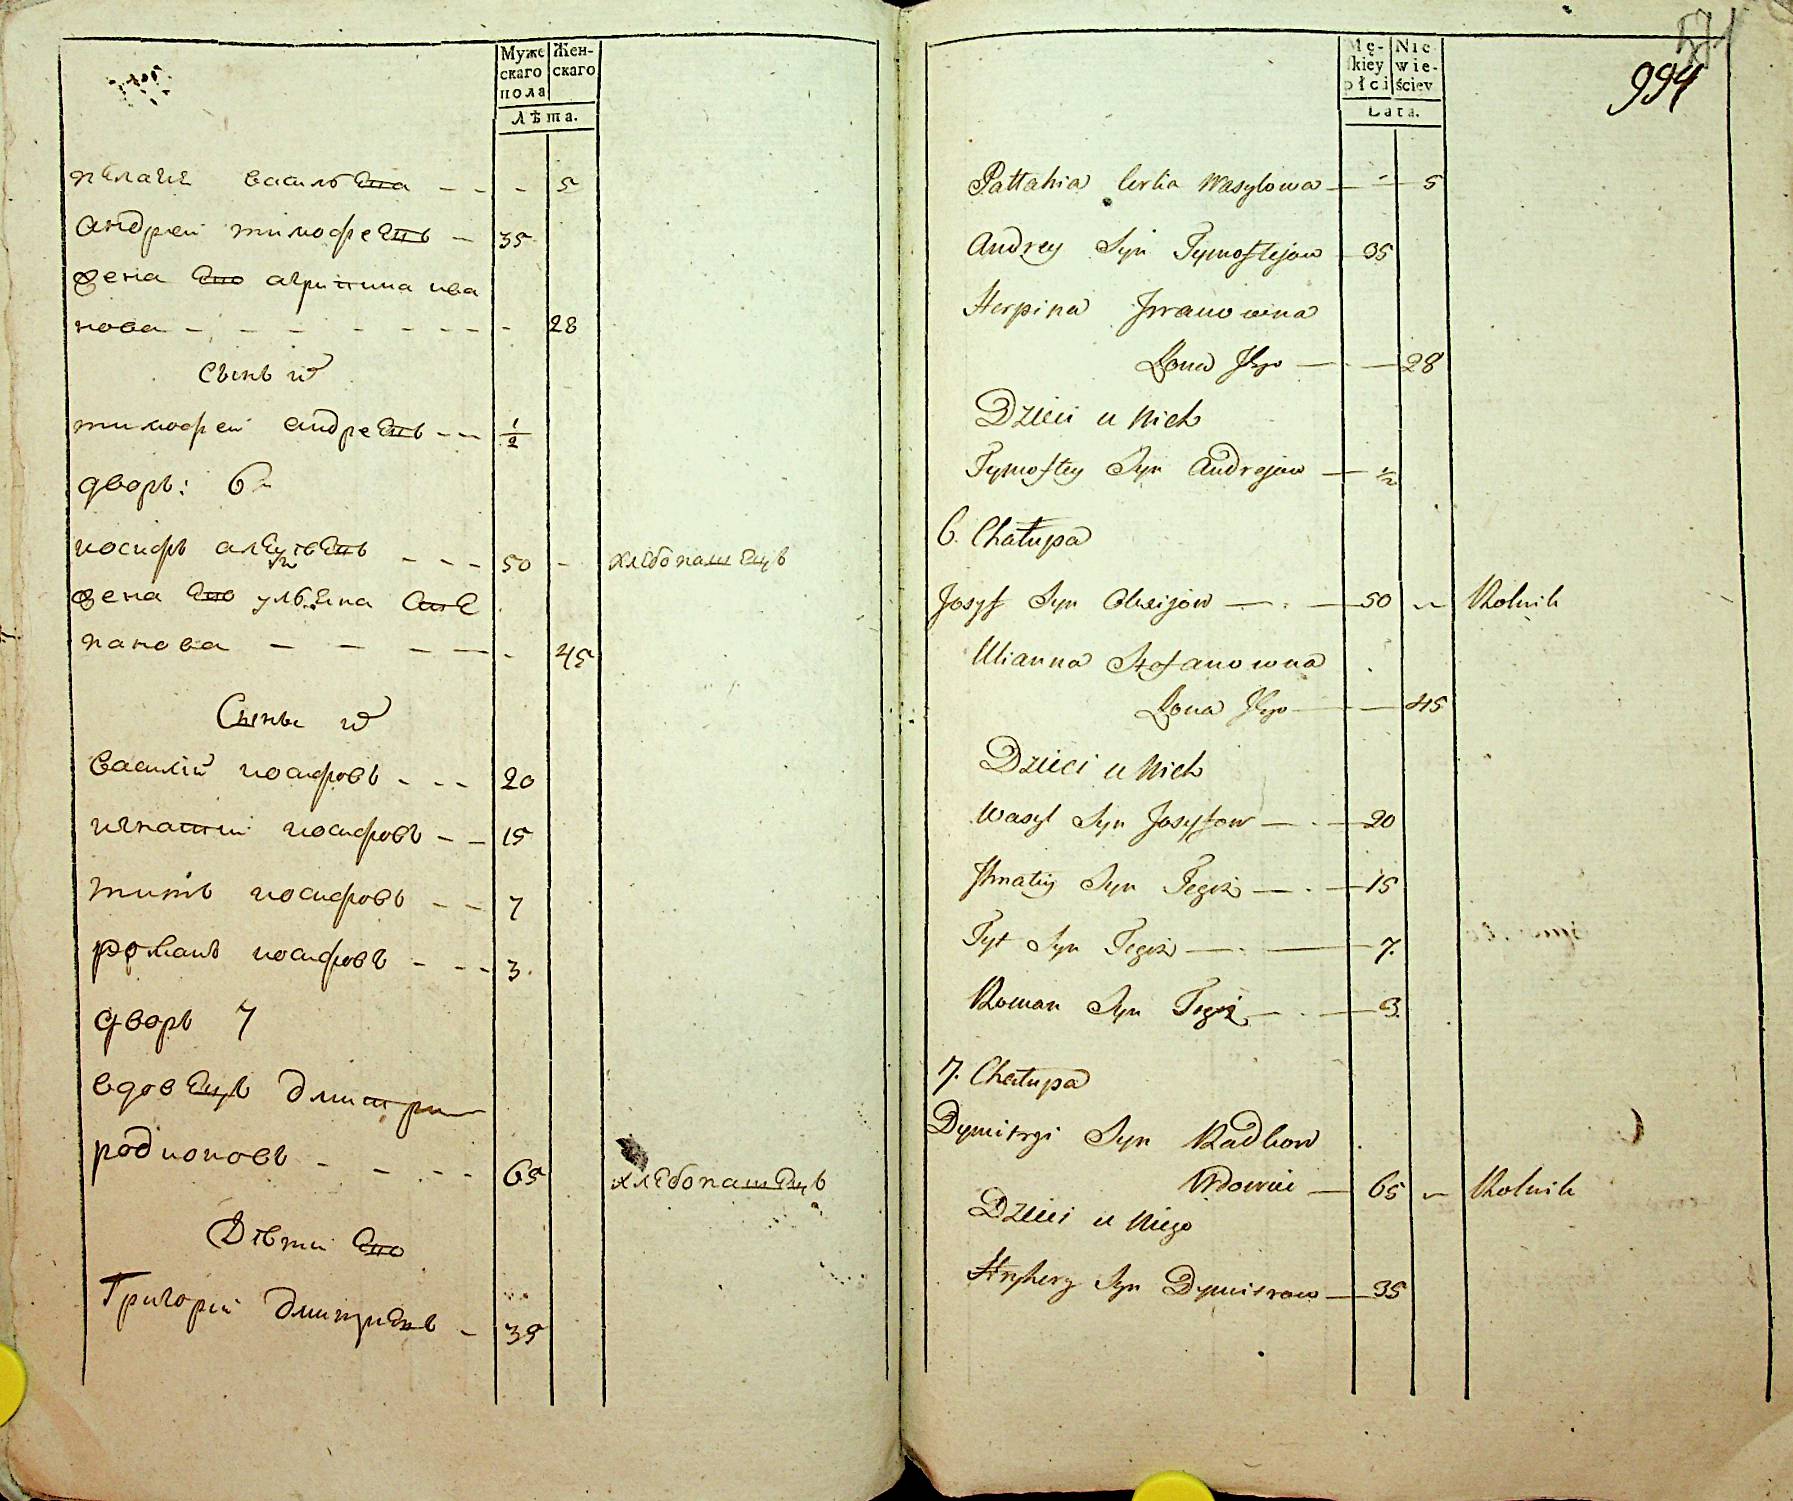 Муже
скаго
пола
Жен-
скаго
Лѣта.
пелагея васильева - - - 5
андрей тимофеевъ - 35
жена ево агрипина ива
нова - - - - - - - - 28
сынъ их
тимофей андреевъ - - 1/2
дворъ: 6
иосифъ алексѣевъ - - - 50 - хлебопашецъ
жена ево ульяна сте
панова - - - - - 45
Сыны их
василий иосифовъ - - - 20
игнатий иосифовъ - - 15
титъ иосифовъ - - 7
романъ иосифовъ - - - 3.
дворъ 7
вдовецъ дмитри
родионовъ - - - - 65 хлебопашецъ
Дѣти ево
Григорий дмитриевъ - 35
Mę-
skiey
płci
Nie
wie-
ściey
Lata.
994
Pallahia Corka Wasylowa — - — 5
Andrey Syn Tymoftejow — 35
Herpina Jwanowna
Żona Jego — — 28
Dzieci u Nich
Tymoftey Syn Andrejow — 1/2
6. Chałupa
Josyf Syn Olexijow — . — 50 Rolnik
Ulianna Stefanowna
Żona Jego — — 45
Dzieci u Nich
Wasyl Syn Josyfow — . — 20
Jhnatiy Syn Tegoż — . — 15
Tyt Syn Tegoż — . — 7.
Roman Syn Tegoż — . — 3.
7. Chałupa
Dymitrgi Syn
Wdowiec — 65 Rolnik
Dzieci u Niego
Syn Dymitrow — 35